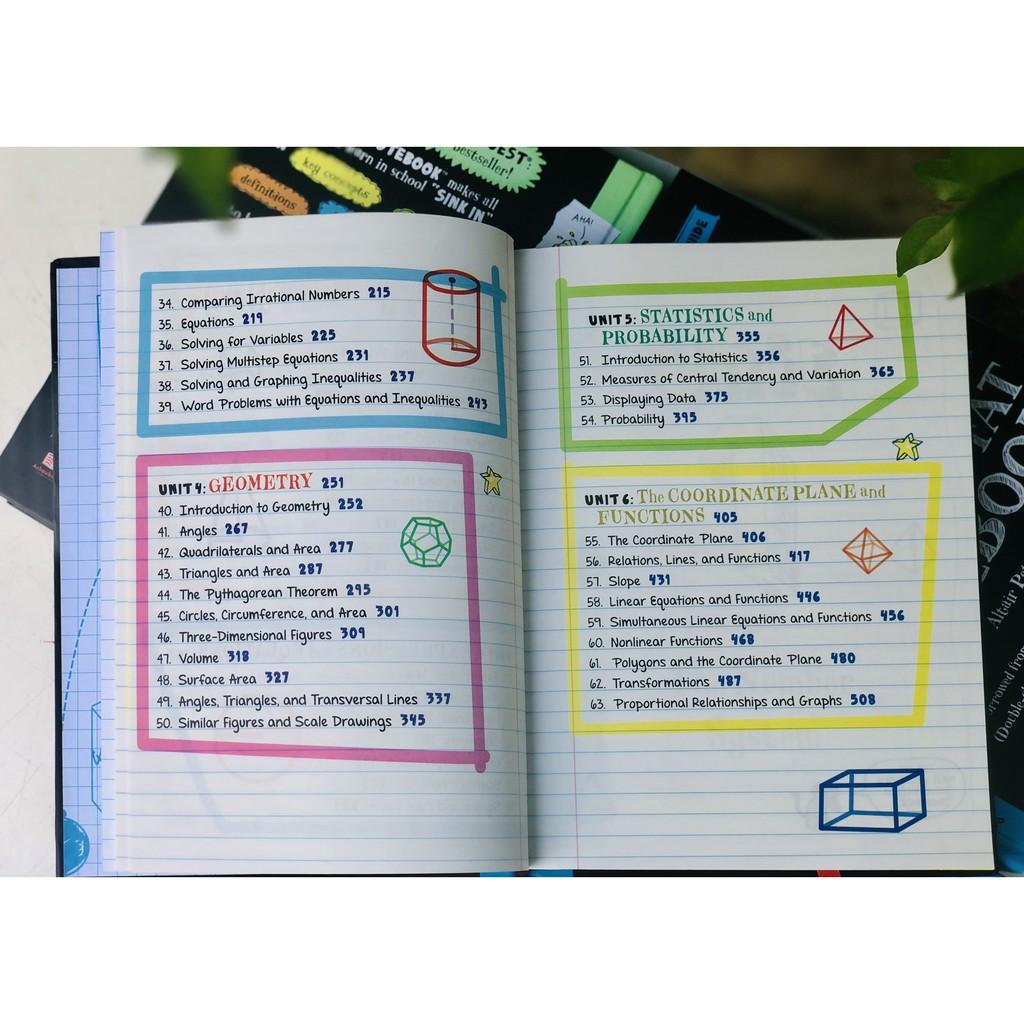 BEST:
bestseller!
key concepts
definitions
NOTEBOOK™ makes all
in school "SINK IN"
AHA!
34. Comparing Irrational Numbers 215
35. Equations 219
36. Solving for Variables 225
37. Solving Multistep Equations 231
38. Solving and Graphing Inequalities 237
39. Word Problems with Equations and Inequalities 243
UNIT 4: GEOMETRY 251
40. Introduction to Geometry 252
41. Angles 267
42. Quadrilaterals and Area 277
43. Triangles and Area 287
44. The Pythagorean Theorem 295
45. Circles, Circumference, and Area 301
46. Three-Dimensional Figures 309
47. Volume 318
48. Surface Area 327
49. Angles, Triangles, and Transversal Lines 337
50. Similar Figures and Scale Drawings 345
UNIT 5: STATISTICS and
PROBABILITY 355
51. Introduction to Statistics 356
52. Measures of Central Tendency and Variation 365
53. Displaying Data 375
54. Probability 395
UNIT 6: The COORDINATE PLANE and
FUNCTIONS 405
55. The Coordinate Plane 406
56. Relations, Lines, and Functions 417
57. Slope 431
58. Linear Equations and Functions 446
59. Simultaneous Linear Equations and Functions 456
60. Nonlinear Functions 468
61. Polygons and the Coordinate Plane 480
62. Transformations 487
63. Proportional Relationships and Graphs 508
Altair